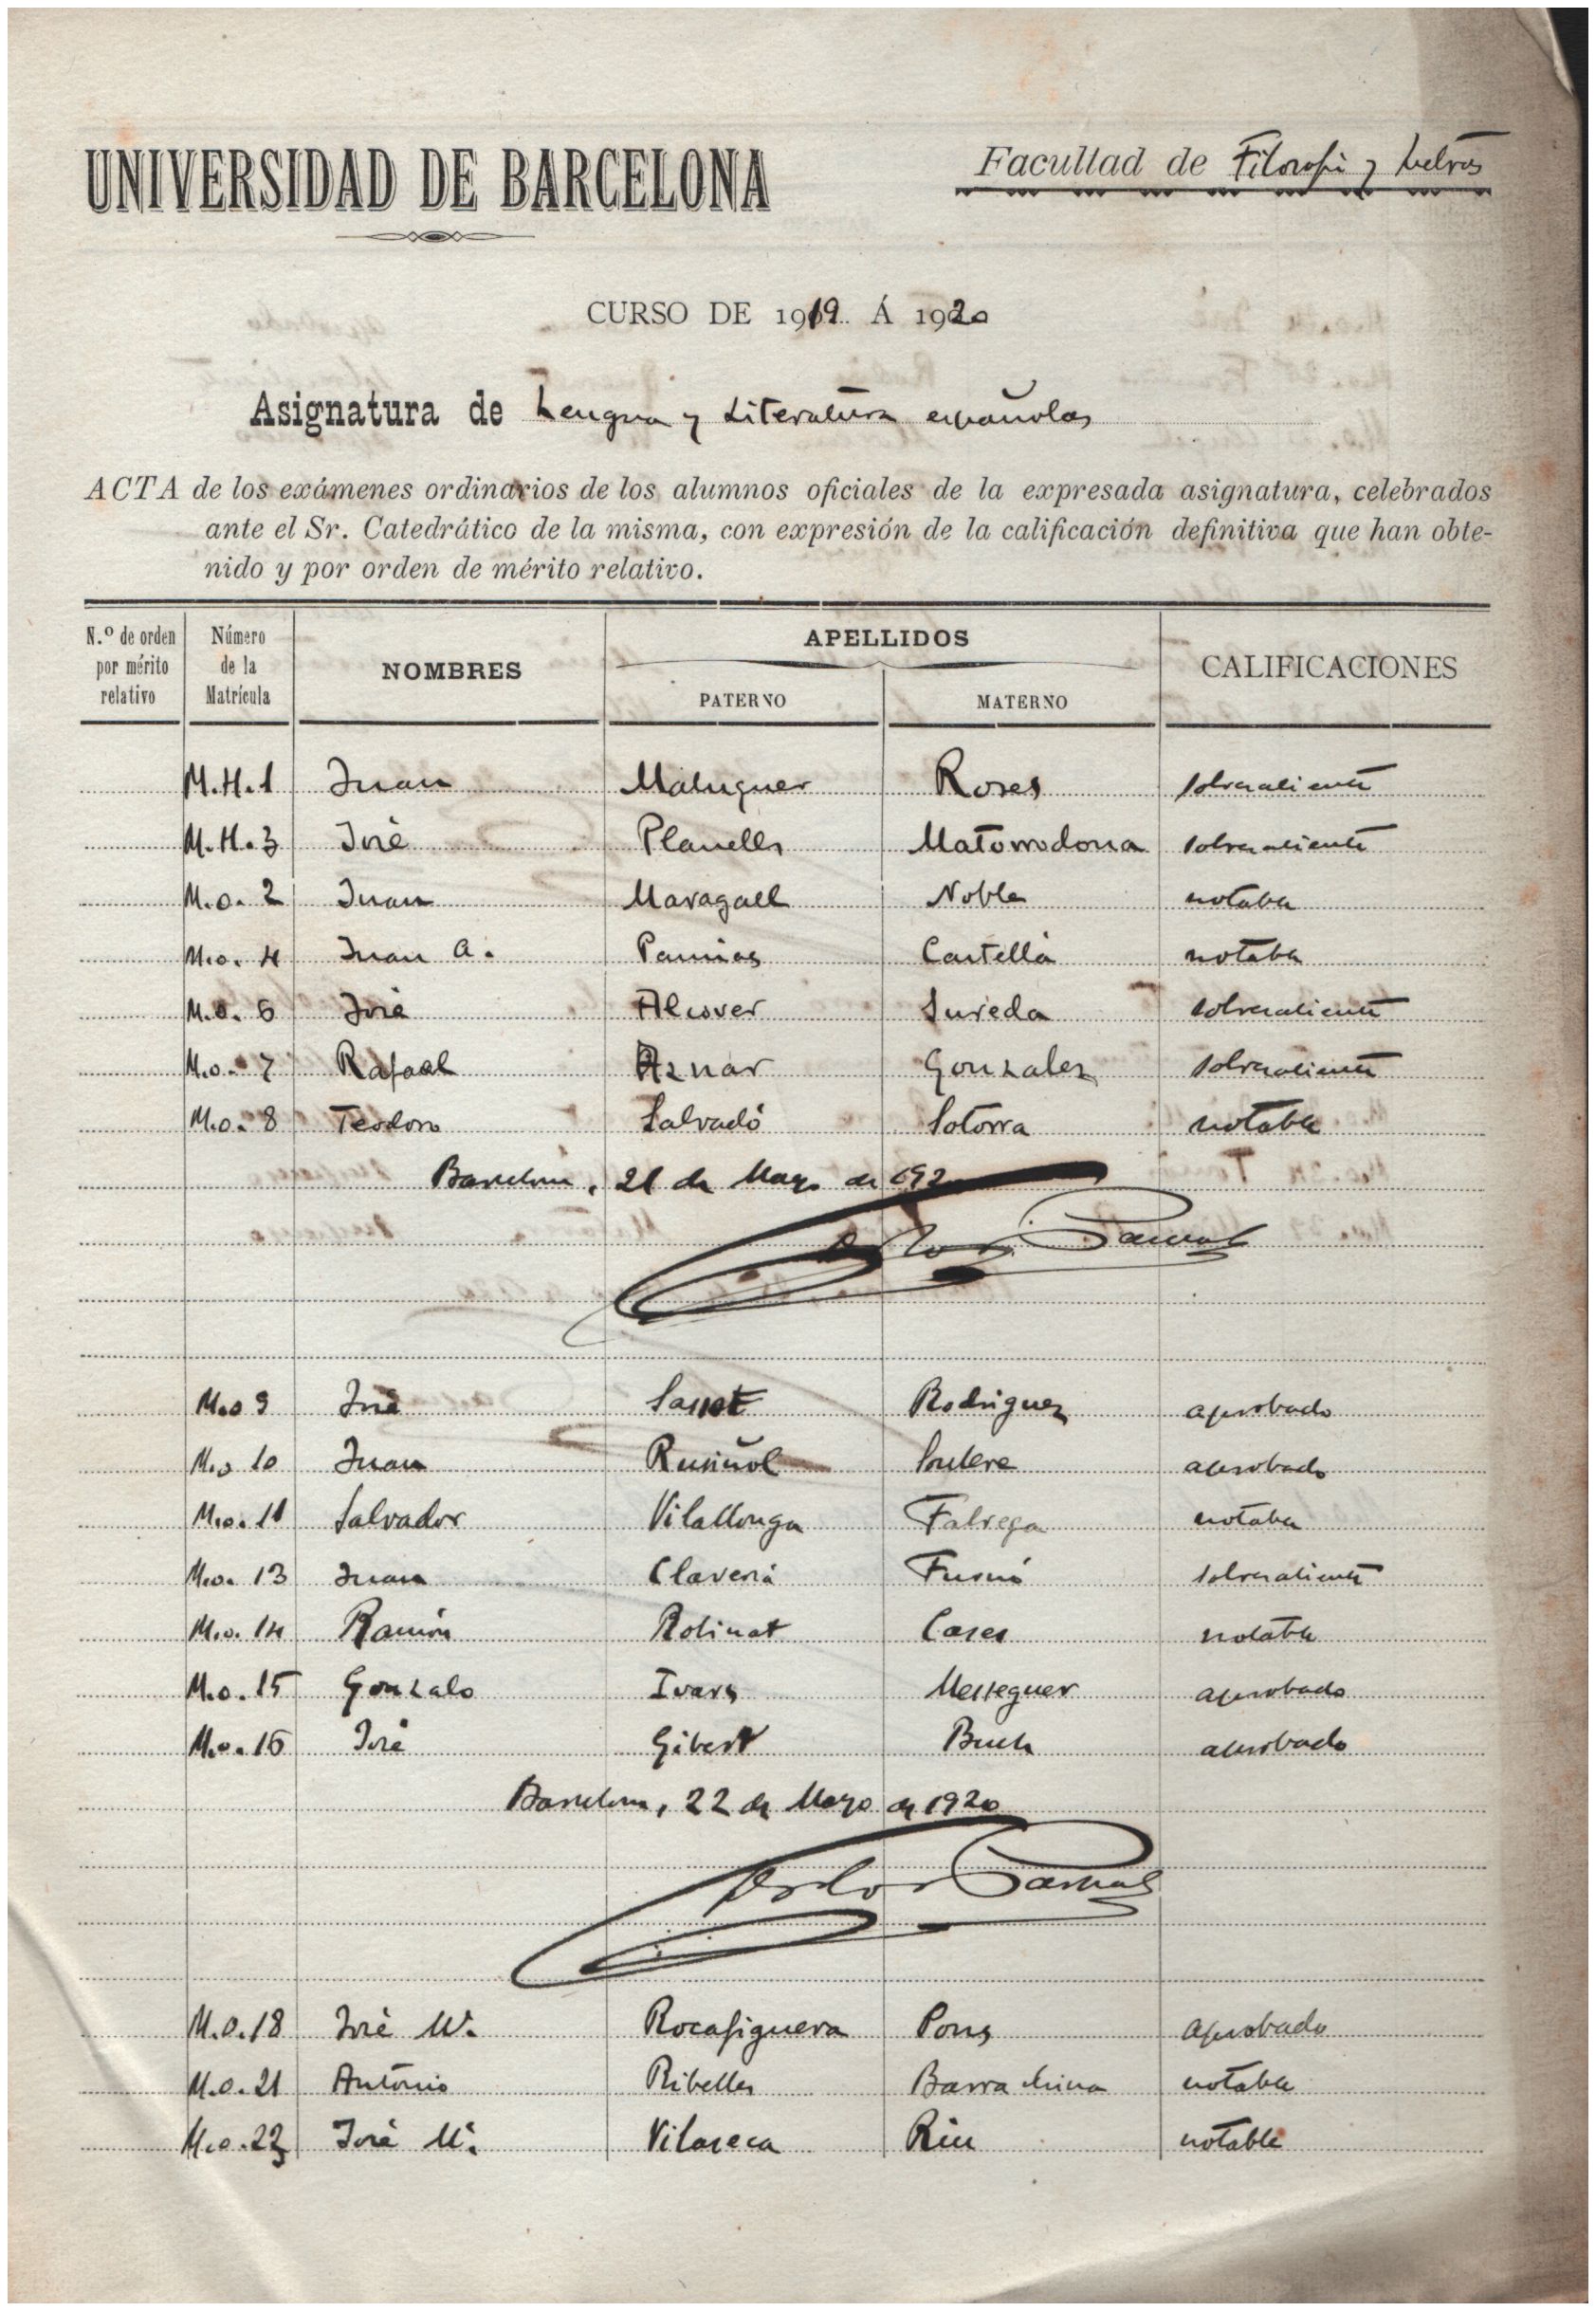 UNIVERSIDAD DE BARCELONA
Facultad de Filosofía y Letras
CURSO DE 1919 Á 1920
Asignatura de Lengua y Literatura españolas
ACTA de los exámenes ordinarios de los alumnos oficiales de la expresada asignatura, celebrados
ante el Sr. Catedrático de la misma, con expresión de la calificación definitiva que han obte-
nido y por orden de mérito relativo.
N.º de orden por mérito relativo | Número de la Matrícula | NOMBRES | APELLIDOS PATERNO | MATERNO | CALIFICACIONES
M.H.1 Juan Maluquer Roses sobresaliente
M.H.3 José Planells Matorrodona sobresaliente
M.o. 2 Juan Maragall Noble notable
M.o. 4 Juan A. Pamias Castellá notable
M.o. 6 José Alcover Sureda sobresaliente
M.o. 7 Rafael Aznar Gonzalez sobresaliente
M.o. 8 Teodoro Salvadó Sotorra notable
Barcelona, 21 de Mayo de 192
M.o 9 José Rodriguez aprobado
M.o 10 Juan Rusiñol aprobado
M.o. 11 Salvador Vilallonga Fabrega notable
M.o. 13 Juan Clavería sobresaliente
M.o. 14 Ramón Rolinat Cases notable
M.o. 15 Gonzalo Ivars Messeguer aprobado
M.o. 16 José Gibert Buch aprobado
Barcelona, 22 de Mayo de 1920
M.o. 18 José Mª. Rocafiguera Pons aprobado
M.o. 21 António Ribelles Barrachina notable
M.o. 23 José Mª. Vilaseca Riu notable